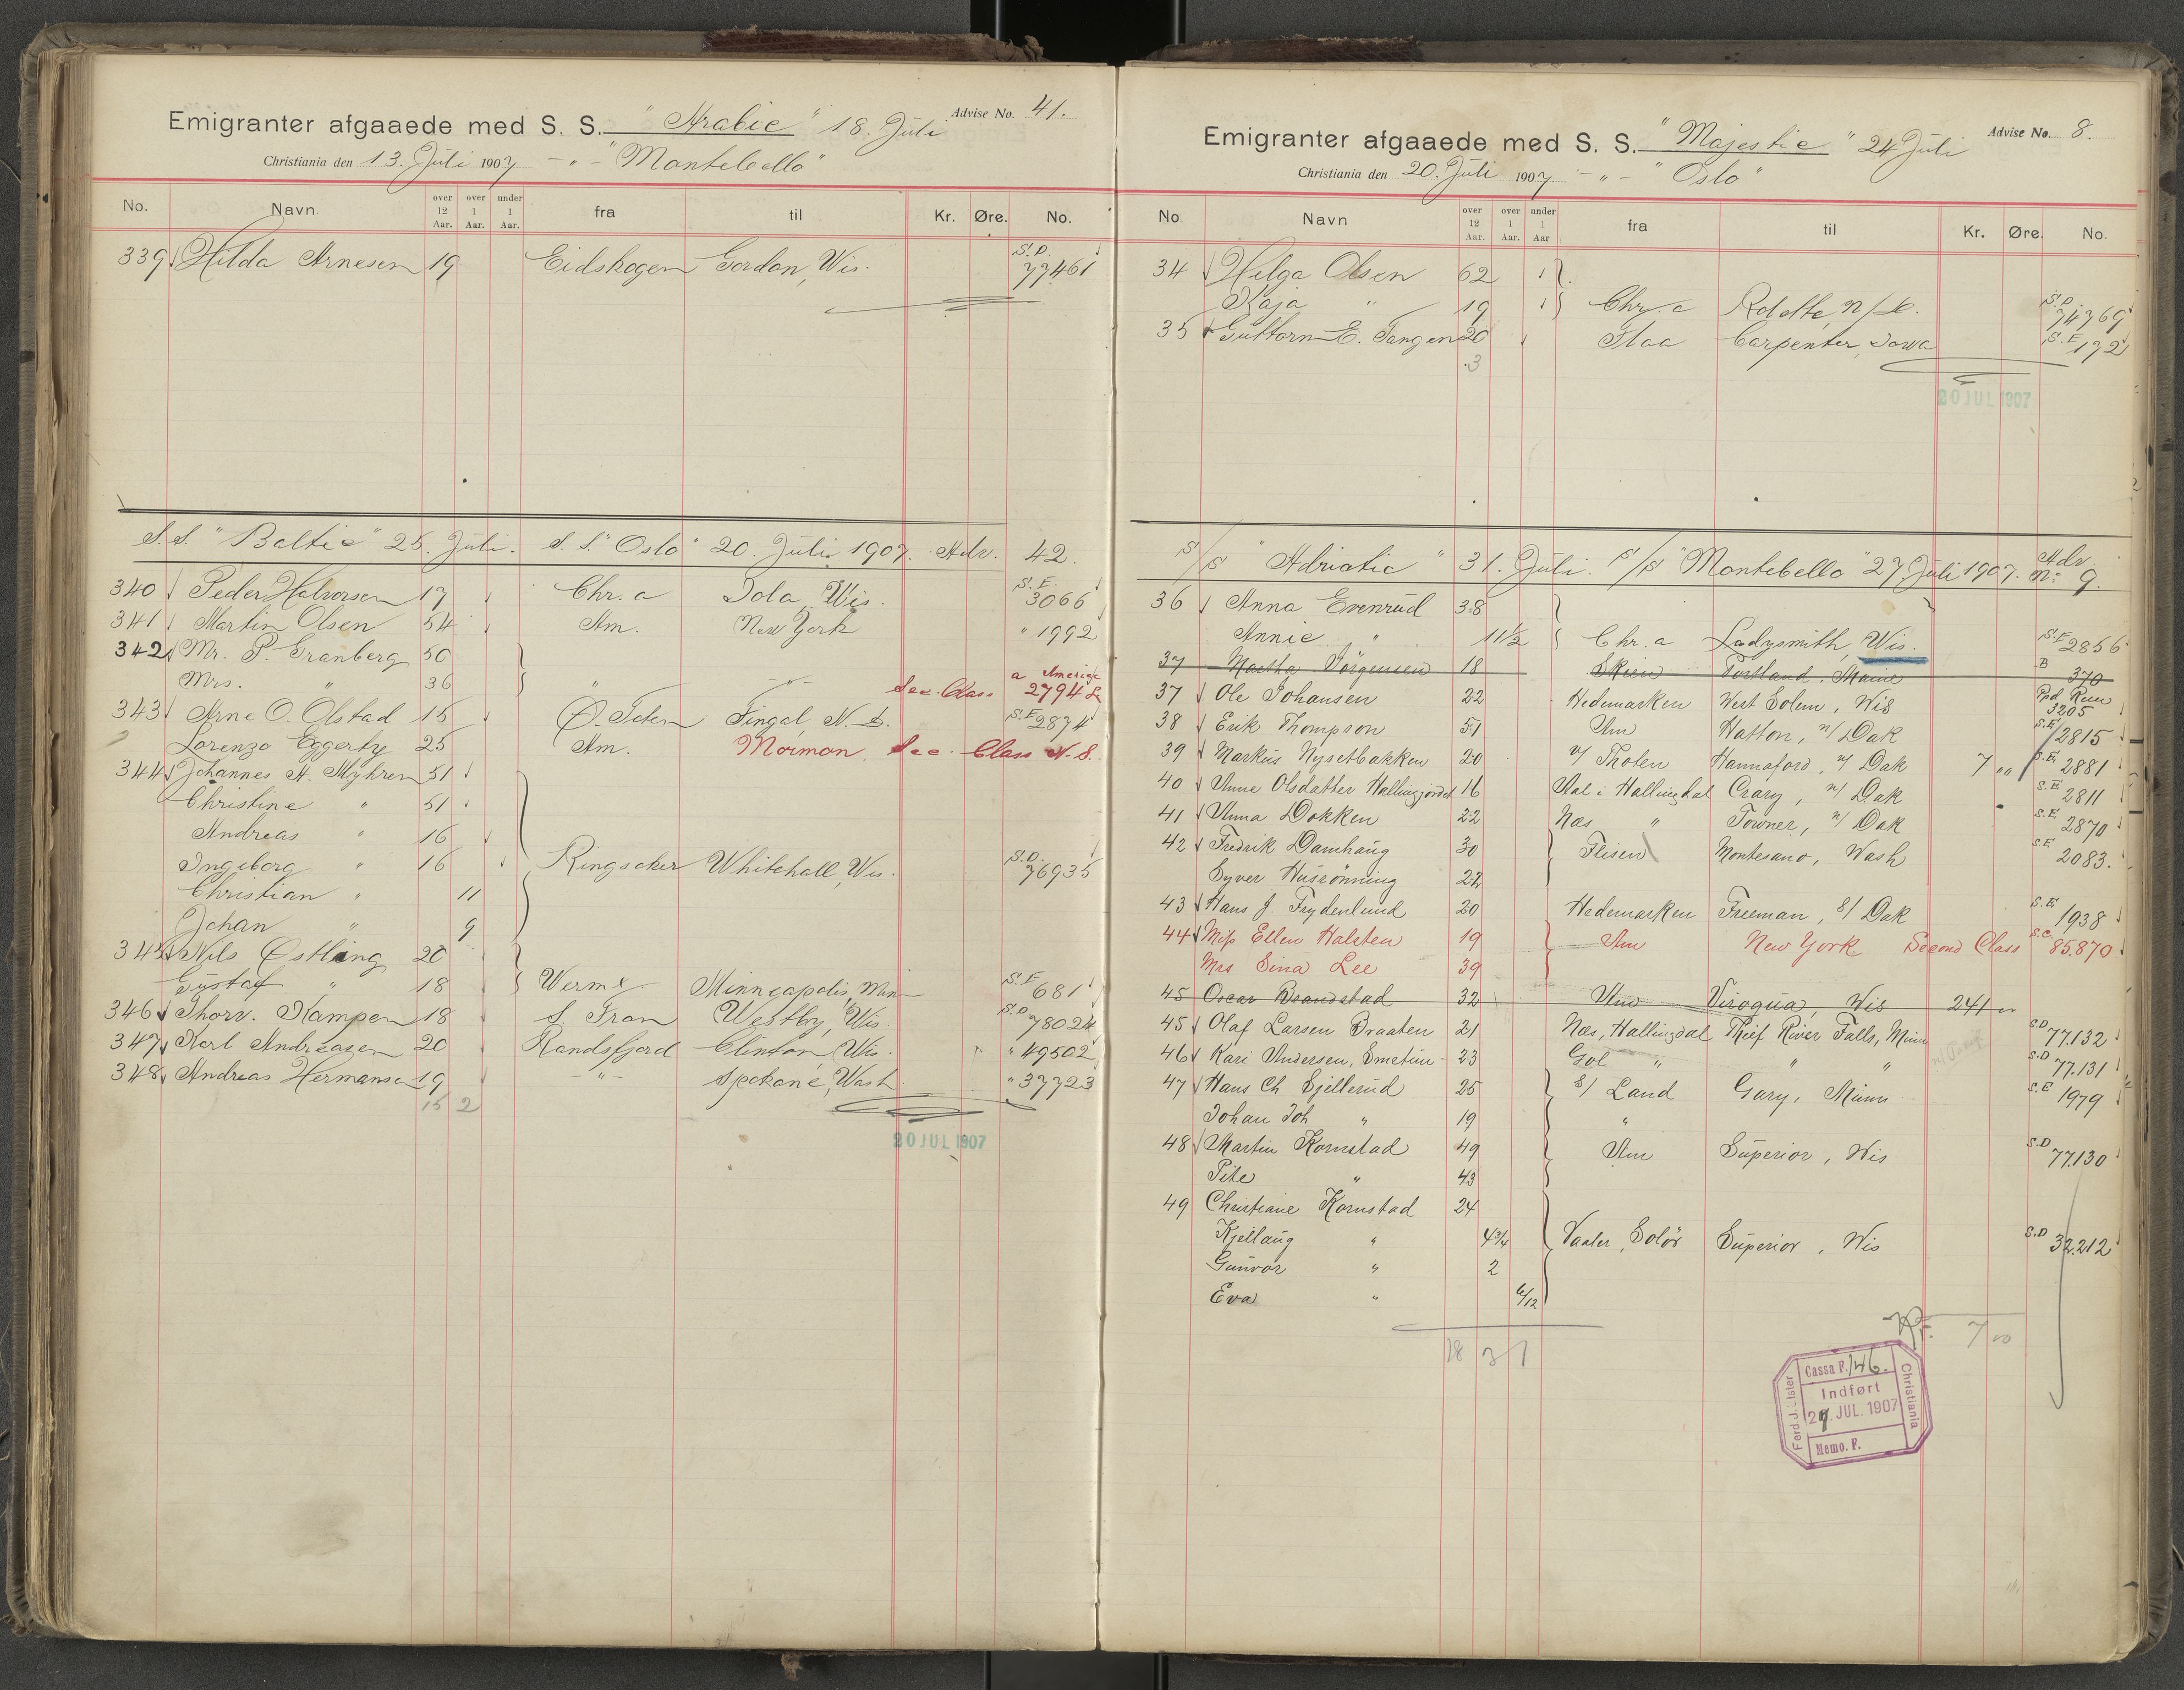 Emigranter afgaaede med S. S. "Arabic" 18. Juli Advise No. 41.
Christiania den 13. Juli 1907 - " - "Montebello"
No. Navn over 12 Aar. over 1 Aar. under 1 Aar. fra til Kr. Øre. No.
339 Hilda Arnesen 19 Eidskogen Gordon, Wis. S.D. 77461
S.S. "Baltic" 25. Juli. S.S. "Oslo" 20. Juli 1907. Adv. 42.
340 Peder Halvorsen 17 Chr.a Iola, Wis. S.E. 3066
341 Martin Olsen 54 Am. New York " 1992
342 Mr. P. Granberg 50
Mrs. " 36 " - " - Sec. Class a Amerige 2794
343 Arne O. Olstad 15 Ø. Toten Fingal, N. D. S.E. 2874
Lorenzo Eggerty 25 Am. Mormon. Sec. Class N. S.
344 Johannes A. Myhren 51
Christine " 51
Andreas " 16
Ingeborg " 16 Ringsaker Whitehall, Wis. S.D. 76935
Christian " 11
Johan " 9
345 Nils Østling 20
Gustaf " 18 Werml. Minneapolis, Minn S.E. 681
346 Thorv. Kampen 18 S. Fron Westby, Wis. S.D. 78024
347 Karl Andreasen 20 Randsfjord Clinton, Wis. " 49502
348 Andreas Hermansen 19 - " - Spokane, Wash. " 37723
15 2
20 JUL 1907
Emigranter afgaaede med S. S. "Majestic" 24 Juli Advise No. 8.
Christiania den 20. Juli 1907 - " - "Oslo"
No. Navn over 12 Aar. over 1 Aar. under 1 Aar fra til Kr. Øre. No.
34 Helga Olsen 62
Kaja " 19 Chr.a Rolette, N/D. S.D. 74769
35 Guttorm E. Tangen 20 Flaa Carpenter, Iowa S.E. 172
3
20 JUL 1907
S/S "Adriatic" 31. Juli. S/S "Montebello" 27. Juli 1907. Adv. No. 9.
36 Anna Evenrud 38
Annie " 11 1/2 Chr.a Ladysmith, Wis. S.E. 2856
37 Martha Jörgensen 18 Skien Portland, Maine B 370
37 Ole Johansen 22 Hedemarken West Salem, Wis 3205
38 Erik Thompson 51 Am Hatton, N/Dak S.E. 2815
39 Markus Nysetbakken 20 V/ Thoten Hannaford, N/Dak 7 " S.E. 2881
40 Anne Olsdatter Hallingjordet 16 Aal i Hallingdal Crary, N/Dak S.E. 2811
41 Anna Dokken 22 Næs " Towner, N/Dak S.E. 2870
42 Fredrik Damhaug 30 Flisen Montesano, Wash S.E. 2083.
Syver Husrönning 22
43 Hans J. Frydenlund 20 Hedemarken Freeman, S/Dak S.E. 1938
44 Miss Ellen Halsten 19 Am New York Second Class S.C. 85.870
Mrs Sina Lee 39
45 Oscar Brandstad 32 Am Viroqua, Wis 241 "
45 Olaf Larsen Braaten 21 Næs, Hallingdal Thief River Falls, Minn S.D 77.132
46 Kari Andersen, Smetun 23 Gol " " " S.D 77.131
47 Hans Ch Gjellerud 25 S/ Land Gary, Minn S.E 1979
Johan Joh " 19 "
48 Martin Kornstad 49 Am Superior, Wis S.D 77.130
Pite " 43
49 Christiane Kornstad 24
Kjellaug " 4 3/4 Vaaler, Solör Superior, Wis S.D 32.212
Gunvor " 2
Eva " 6/12
18 3 1
Kr. 7 00
Cassa F. 146.
Indført
27. JUL. 1907
Memo. F.
Ferd J. Lister
Christiania